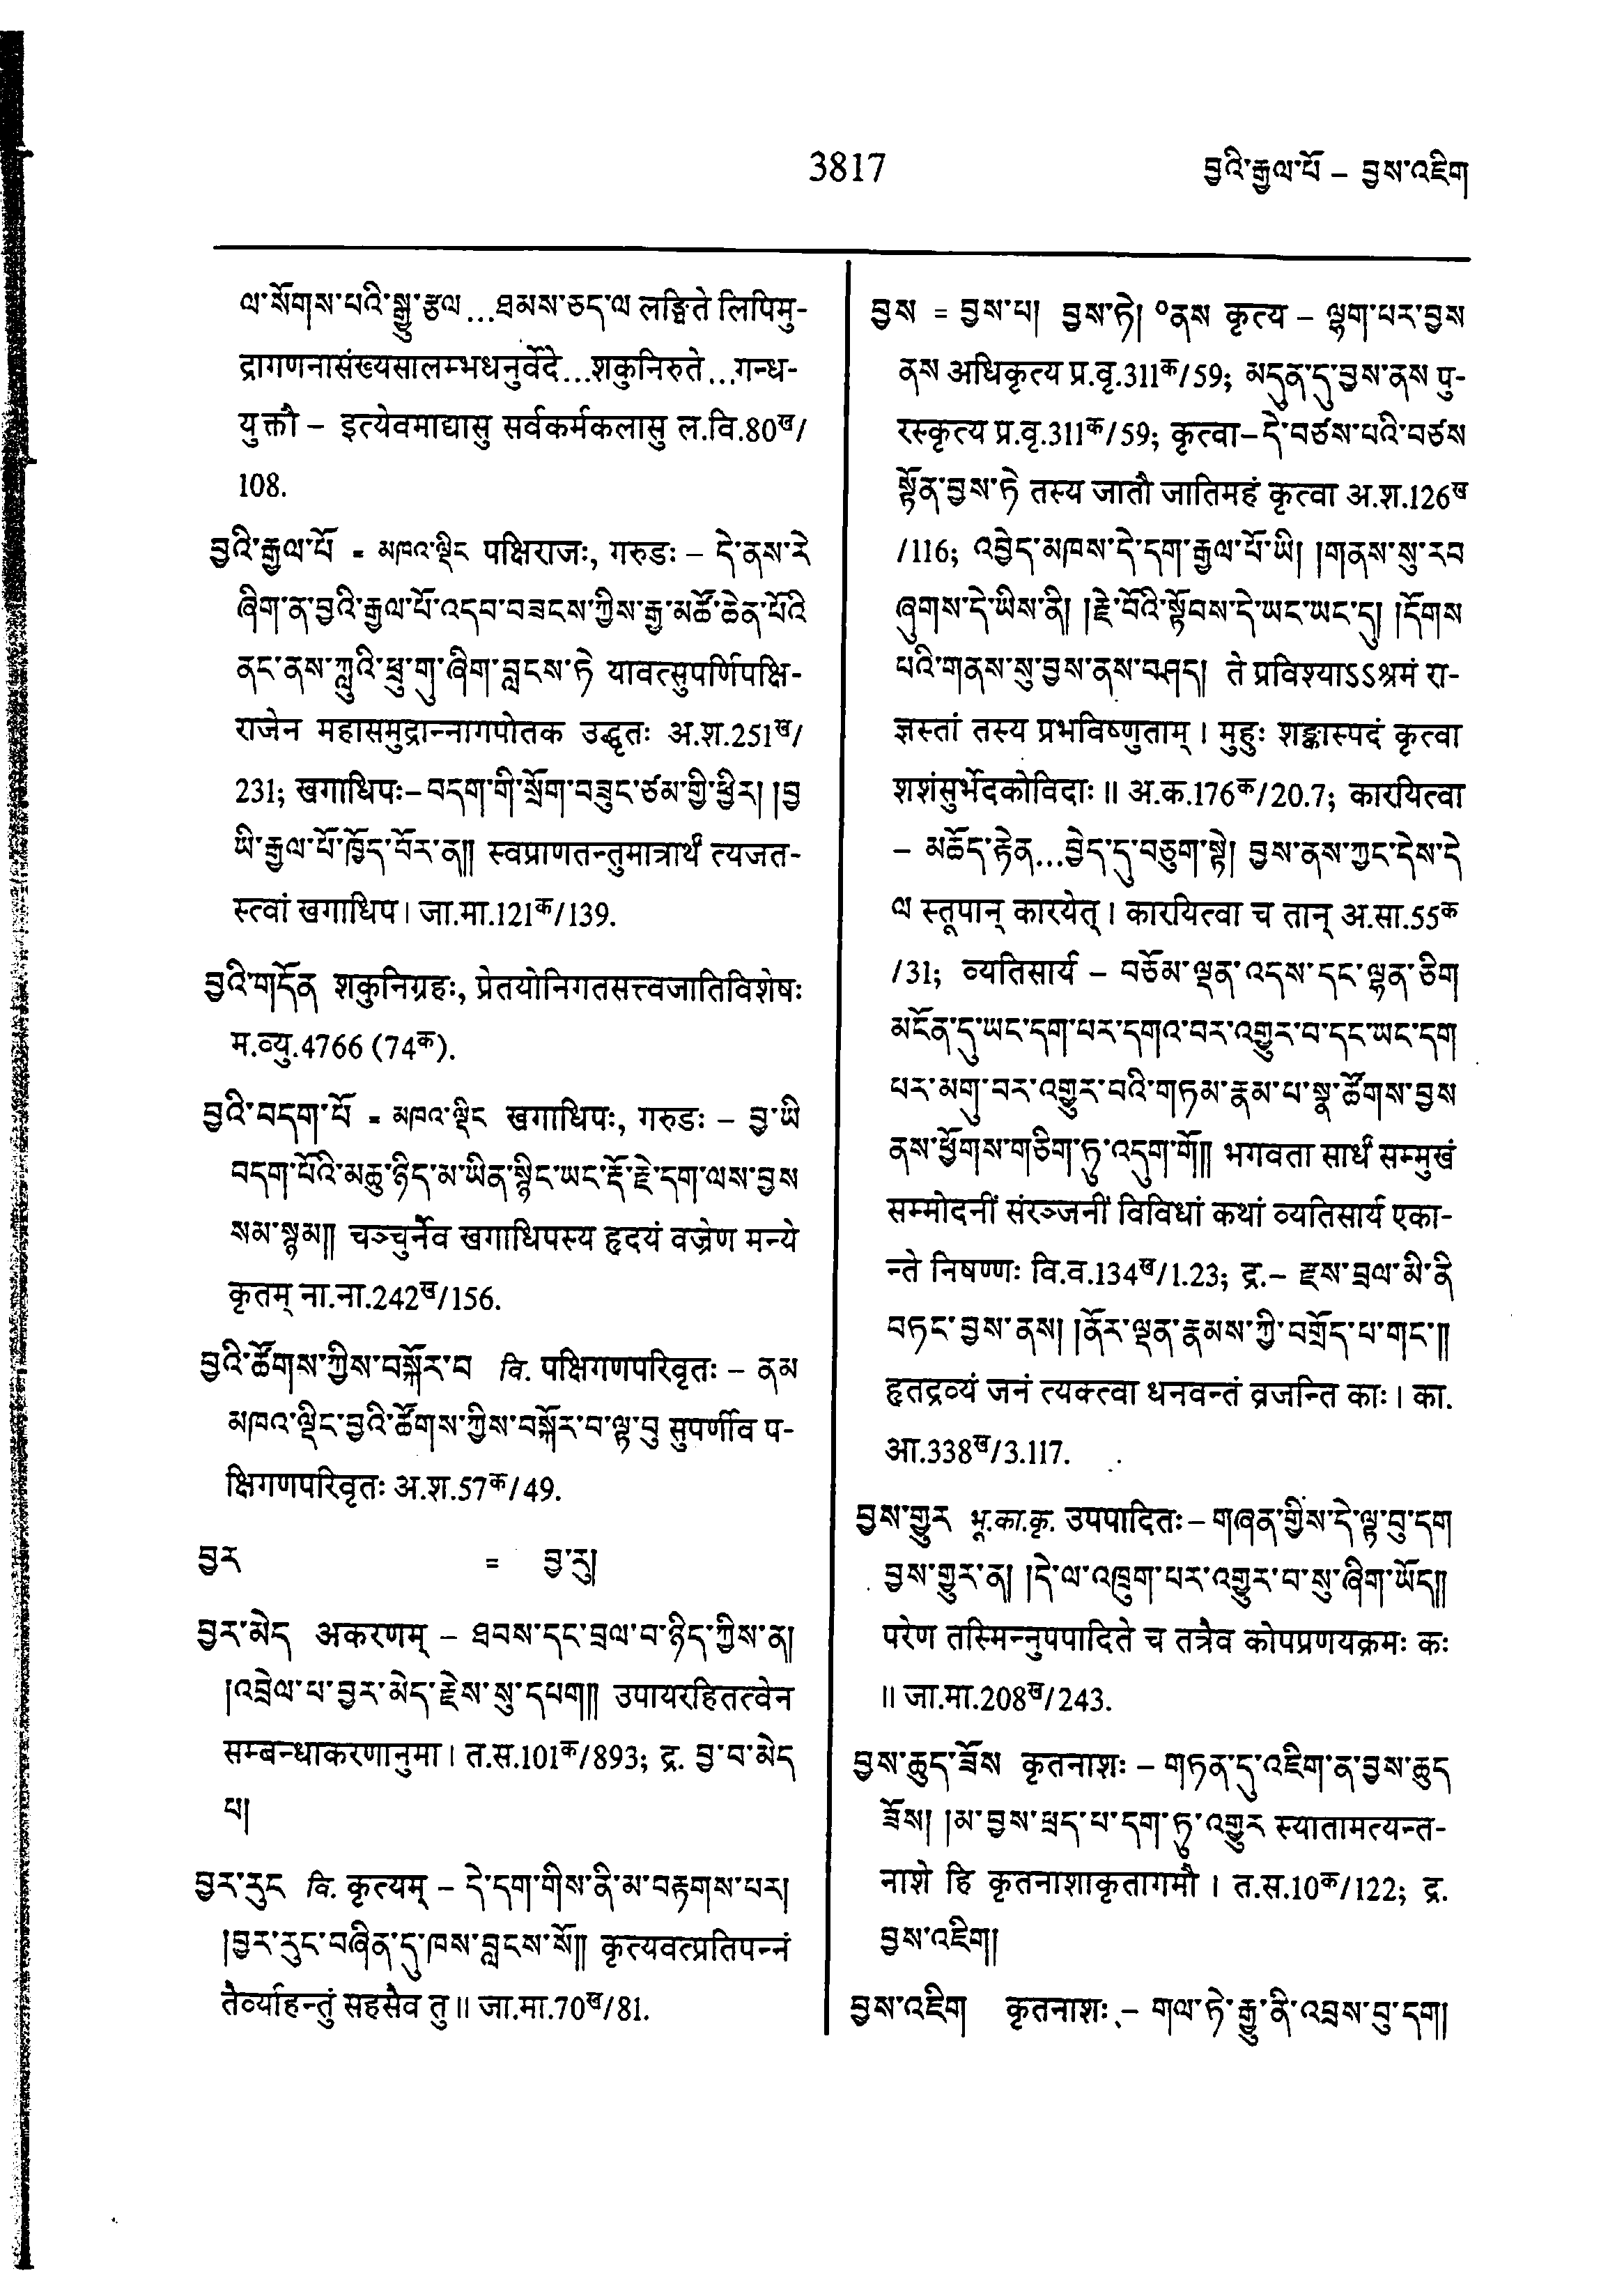 3817
བྱའི་རྒྱལ་པོ – བྱས་འཇིག
ལ་སོགས་པའི་སྒྱུ་རྩལ...ཐམས་ཅད་ལ लङ्घिते लिपिमु-
द्रागणनासंख्यसालम्भधनुर्वेदे...शकुनिरुते...गन्ध-
युक्तौ – इत्येवमाद्यासु सर्वकर्मकलासु ल.वि.80ख/
108.
བྱའི་རྒྱལ་པོ = མཁའ་ལྡིང पक्षिराजः, गरुडः – དེ་ནས་རེ
ཞིག་ན་བྱའི་རྒྱལ་པོ་འདབ་བཟངས་ཀྱིས་རྒྱ་མཚོ་ཆེན་པོའི
ནང་ནས་ཀླུའི་ཕྲུ་གུ་ཞིག་བླངས་ཏེ यावत्सुपर्णिपक्षि-
राजेन महासमुद्रान्नागपोतक उद्धृतः अ.श.251ख/
231; खगाधिपः– བདག་གི་སྲོག་བཟུང་ཙམ་གྱི་ཕྱིར། །བྱ
ཡི་རྒྱལ་པོ་ཁྱོད་བོར་ན།། स्वप्राणतन्तुमात्रार्थं त्यजत-
स्त्वां खगाधिप। जा.मा.121क/139.
བྱའི་གདོན शकुनिग्रहः, प्रेतयोनिगतसत्त्वजातिविशेषः
म.व्यु.4766 (74क).
བྱའི་བདག་པོ = མཁའ་ལྡིང खगाधिपः, गरुडः – བྱ་ཡི
བདག་པོའི་མཆུ་ཉིད་མ་ཡིན་སྙིང་ཡང་རྡོ་རྗེ་དག་ལས་བྱས
སམ་སྙམ།། चञ्चुर्नैव खगाधिपस्य हृदयं वज्रेण मन्ये
कृतम् ना.ना.242ख/156.
བྱའི་ཚོགས་ཀྱིས་བསྐོར་བ वि. पक्षिगणपरिवृतः – ནམ
མཁའ་ལྡིང་བྱའི་ཚོགས་ཀྱིས་བསྐོར་བ་ལྟ་བུ सुपर्णीव प-
क्षिगणपरिवृतः अ.श.57क/49.
བྱར = བྱ་རུ།
བྱར་མེད अकरणम् – ཐབས་དང་བྲལ་བ་ཉིད་ཀྱིས་ན།
།འབྲེལ་པ་བྱར་མེད་རྗེས་སུ་དཔག།། उपायरहितत्वेन
सम्बन्धाकरणानुमा। त.स.101क/893; द्र. བྱ་བ་མེད
པ།
བྱར་རུང वि. कृत्यम् – དེ་དག་གིས་ནི་མ་བརྟགས་པར།
།བྱར་རུང་བཞིན་དུ་ཁས་བླངས་སོ།། कृत्यवत्प्रतिपन्नं
तैर्व्याहन्तुं सहसैव तु॥ जा.मा.70ख/81.
བྱས = བྱས་པ། བྱས་ཏེ། ०ནས कृत्य – ལྷག་པར་བྱས
ནས अधिकृत्य प्र.वृ.311क/59; མདུན་དུ་བྱས་ནས पु-
रस्कृत्य प्र.वृ.311क/59; कृत्वा– དེ་བཙས་པའི་བཙས
སྟོན་བྱས་ཏེ तस्य जातौ जातिमहं कृत्वा अ.श.126ख
/116; འབྱེད་མཁས་དེ་དག་རྒྱལ་པོ་ཡི། །གནས་སུ་རབ
ཞུགས་དེ་ཡིས་ནི། །རྗེ་བོའི་སྟོབས་དེ་ཡང་ཡང་དུ། །དོགས
པའི་གནས་སུ་བྱས་ནས་བཤད། ते प्रविश्याऽऽश्रमं रा-
ज्ञस्तां तस्य प्रभविष्णुताम्। मुहुः शङ्कास्पदं कृत्वा
शशंसुर्भेदकोविदाः॥ अ.क.176क/20.7; कारयित्वा
– མཆོད་རྟེན...བྱེད་དུ་བཅུག་སྟེ། བྱས་ནས་ཀྱང་དེས་དེ
ལ स्तूपान् कारयेत्। कारयित्वा च तान् अ.सा.55क
/31; व्यतिसार्य – བཅོམ་ལྡན་འདས་དང་ལྷན་ཅིག
མངོན་དུ་ཡང་དག་པར་དགའ་བར་འགྱུར་བ་དང་ཡང་དག
པར་མགུ་བར་འགྱུར་བའི་གཏམ་རྣམ་པ་སྣ་ཚོགས་བྱས
ནས་ཕྱོགས་གཅིག་ཏུ་འདུག་གོ།། भगवता सार्धं सम्मुखं
सम्मोदनीं संरञ्जनीं विविधां कथां व्यतिसार्य एका-
न्ते निषण्णः वि.व.134ख/1.23; द्र.– རྫས་བྲལ་མི་ནི
བཏང་བྱས་ནས། །ནོར་ལྡན་རྣམས་ཀྱི་བགྲོད་པ་གང་།།
हृतद्रव्यं जनं त्यक्त्वा धनवन्तं व्रजन्ति काः। का.
आ.338ख/3.117.
བྱས་གྱུར भू.का.कृ. उपपादितः– གཞན་གྱིས་དེ་ལྟ་བུ་དག
བྱས་གྱུར་ན། །དེ་ལ་འཁྲུག་པར་འགྱུར་བ་སུ་ཞིག་ཡོད།།
परेण तस्मिन्नुपपादिते च तत्रैव कोपप्रणयक्रमः कः
॥ जा.मा.208ख/243.
བྱས་ཆུད་ཟོས कृतनाशः – གཏན་དུ་འཇིག་ན་བྱས་ཆུད
ཟོས། །མ་བྱས་ཕྲད་པ་དག་ཏུ་འགྱུར स्यातामत्यन्त-
नाशे हि कृतनाशाकृतागमौ। त.स.10क/122; द्र.
བྱས་འཇིག།
བྱས་འཇིག कृतनाशः – གལ་ཏེ་རྒྱུ་ནི་འབྲས་བུ་དག།